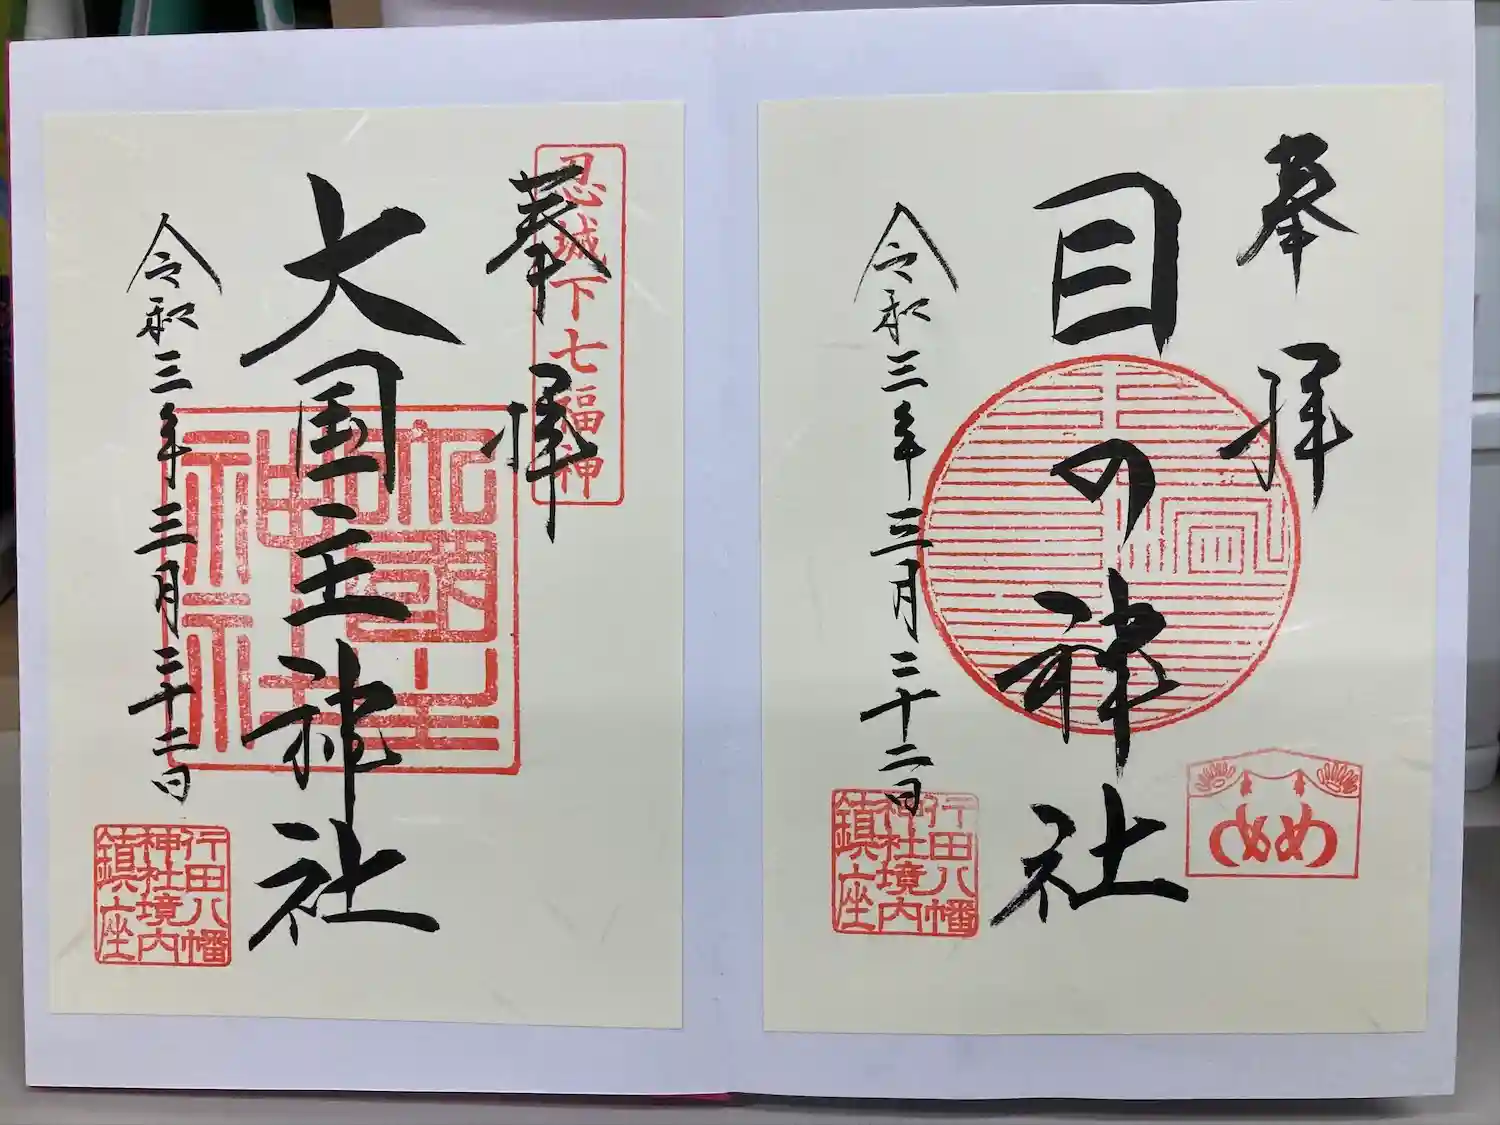 奉拝
目の神社
令和三年三月二十二日
行田八幡
神社境内
鎮座
め め
忍城下七福神
奉拝
大国主神社
令和三年三月二十二日
大國主
神社
行田八幡
神社境内
鎮座